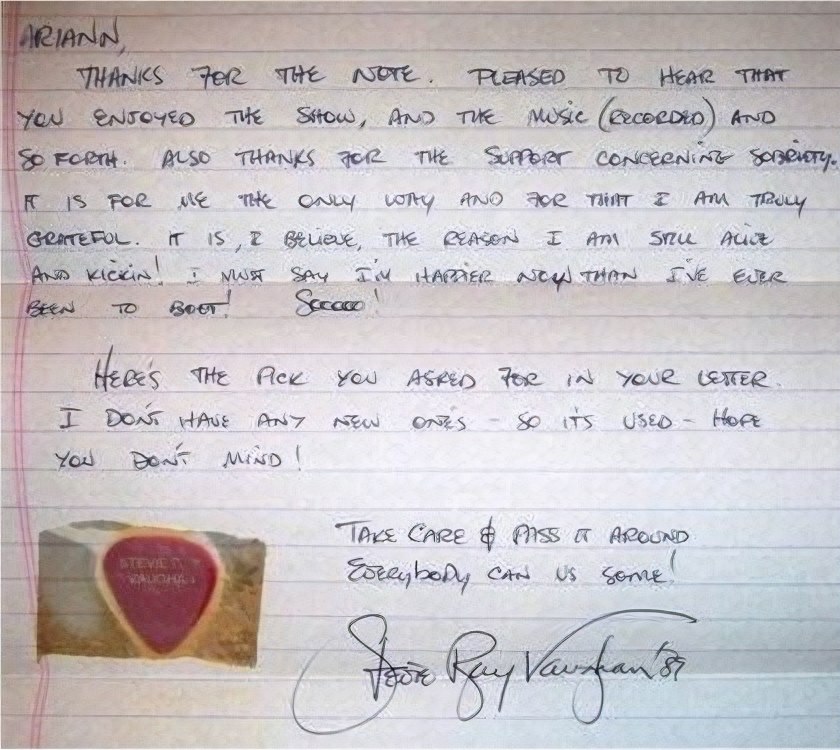 ARIANN,
THANKS FOR THE NOTE. PLEASED TO HEAR THAT
YOU ENJOYED THE SHOW, AND THE MUSIC (RECORDED) AND
SO FORTH. ALSO THANKS FOR THE SUPPORT CONCERNING SOBRIETY.
IT IS FOR ME THE ONLY WAY AND FOR THAT I AM TRULY
GRATEFUL. IT IS, I BELIEVE, THE REASON I AM STILL ALIVE
AND KICKIN! I MUST SAY I'M HAPPIER NOW THAN I'VE EVER
BEEN TO BOOT! Sooooo!
HERE'S THE PICK YOU ASKED FOR IN YOUR LETTER.
I DON'T HAVE ANY NEW ONE'S - SO IT'S USED - HOPE
YOU DON'T MIND!
STEVIE R.
VAUGHAN
TAKE CARE & PASS IT AROUND
EVERYBODY CAN US SOME!
Stevie Ray Vaughan '89